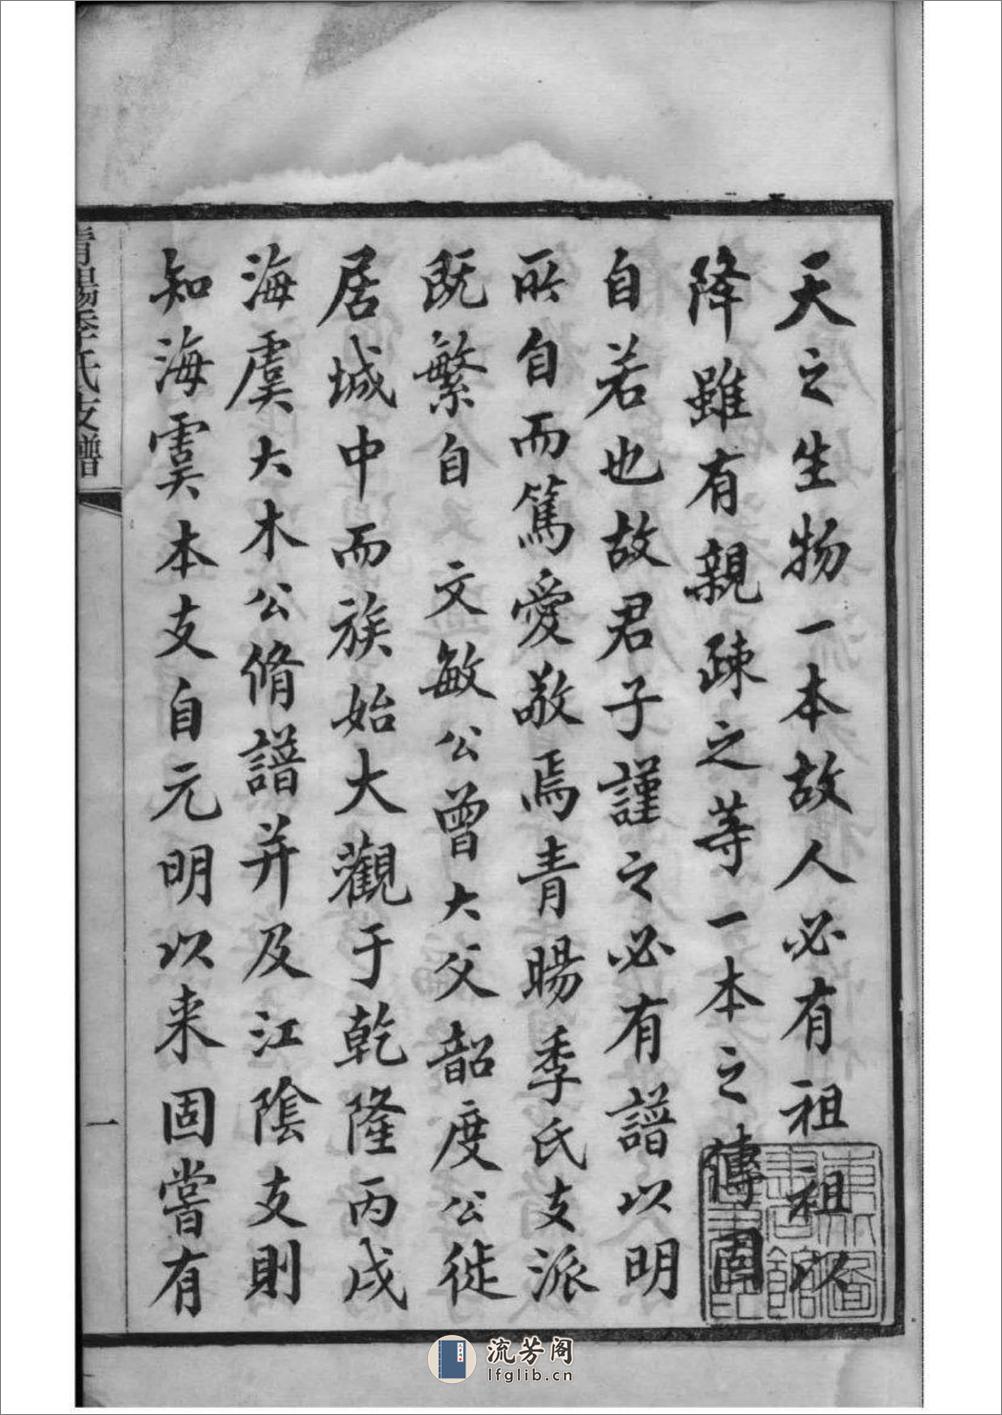 天之生物一本故人必有祖祖以
降雖有親疎之等一本之傳固
自若也故君子謹之必有譜以明
所自而篤愛敬焉青暘季氏支派
既繁自文敏公曾大父韶度公徙
居城中而族始大觀于乾隆丙戌
海虞大木公脩譜并及江陰支則
知海虞本支自元明以来固嘗有
青暘季氏支譜
一
流芳阁
lfglib.cn